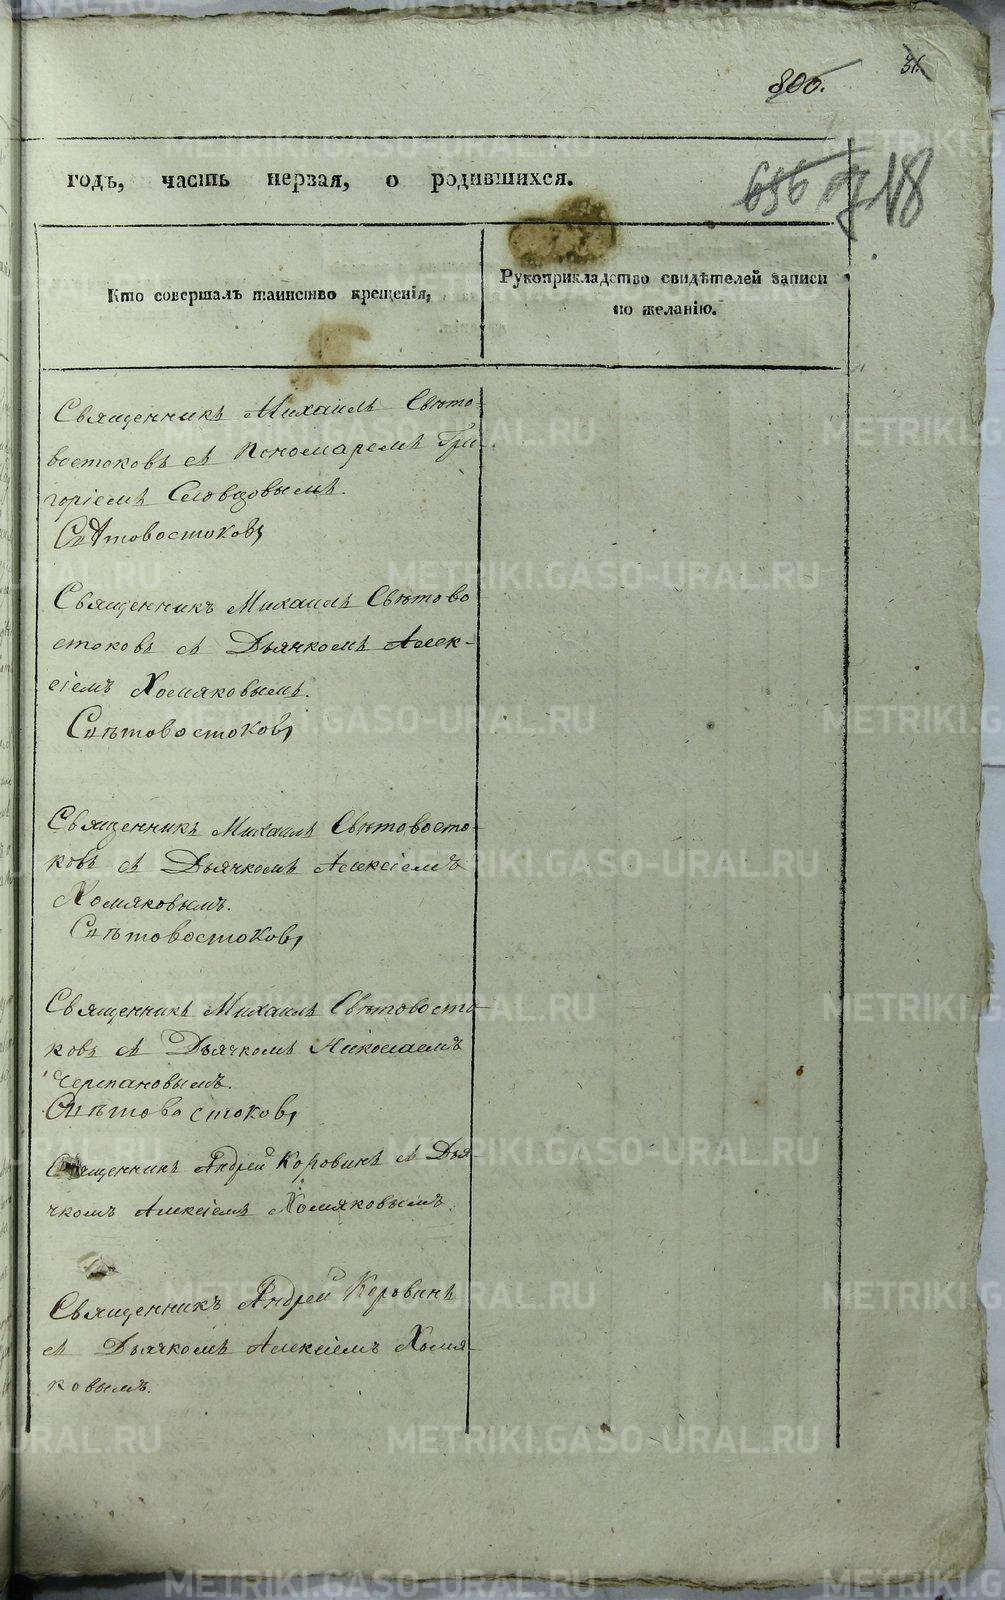 31.
800.
656
718
годъ, часть первая, о родившихся.
Кто совершалъ таинство крещенія,
Рукоприкладство свидѣтелей записи
по желанію.
Священникъ Михаилъ Свѣто-
востоковъ съ Пономаремъ Гри-
горіемъ Словцовымъ.
Свѣтовостоковъ
Священникъ Михаилъ Свѣтово
стоковъ съ Дьячкомъ Алек-
сіемъ Хомяковымъ.
Свѣтовостоковъ
Священникъ Михаилъ Свѣтовосто-
ковъ съ Дьячкомъ Алексіемъ
Хомяковымъ.
Свѣтовостоковъ
Священникъ Михаилъ Свѣтовосто-
ковъ съ Дьячкомъ Николаемъ
Черпановымъ.
Свѣтовостоковъ
Священникъ Андрей Коровинъ съ Дья-
чкомъ Алексіемъ Хомяковымъ.
Священникъ Андрей Коровинъ
съ Дьячкомъ Алексіемъ Хомя-
ковымъ.
METRIKI.GASO-URAL.RU